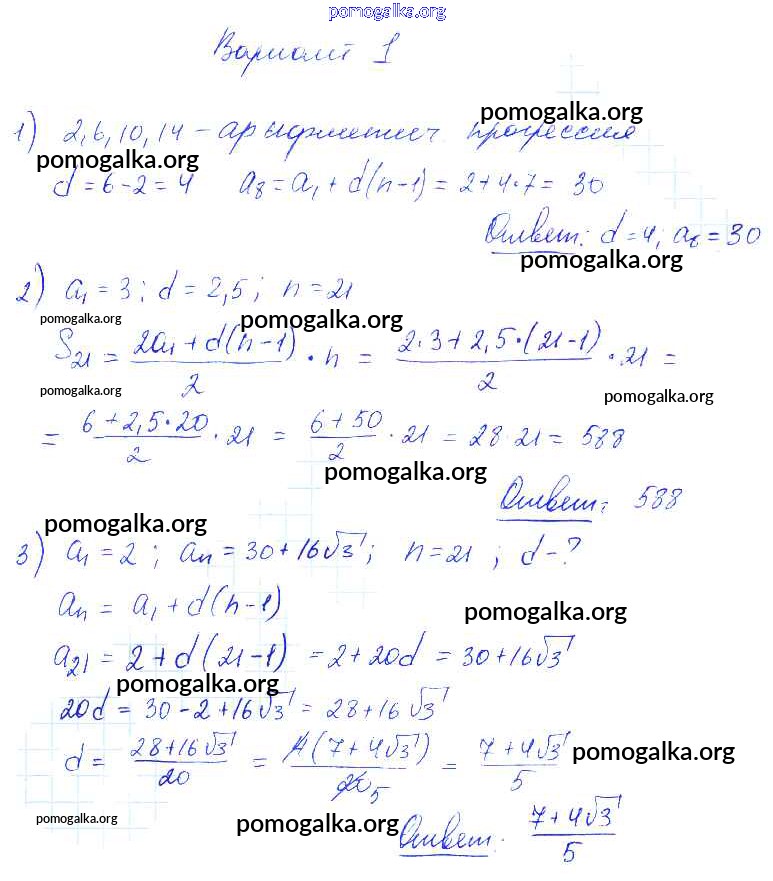 pomogalka.org
Вариант 1
pomogalka.org
1) 2, 6, 10, 14 – арифметич. прогрессия
pomogalka.org
d = 6 - 2 = 4 a₈ = a₁ + d(n-1) = 2 + 4·7 = 30
Ответ: d = 4; a₈ = 30
pomogalka.org
2) a₁ = 3; d = 2,5; n = 21
pomogalka.org pomogalka.org
S₂₁ = (2a₁ + d(n-1))/2 · n = (2·3 + 2,5·(21-1))/2 · 21 =
pomogalka.org pomogalka.org
= (6 + 2,5·20)/2 · 21 = (6 + 50)/2 · 21 = 28·21 = 588
pomogalka.org
Ответ: 588
pomogalka.org
3) a₁ = 2; aₙ = 30 + 16√3; n = 21; d - ?
aₙ = a₁ + d(n-1)
pomogalka.org
a₂₁ = 2 + d(21-1) = 2 + 20d = 30 + 16√3
pomogalka.org
20d = 30 - 2 + 16√3 = 28 + 16√3
d = (28 + 16√3)/20 = 4(7 + 4√3)/20 5 = (7 + 4√3)/5
pomogalka.org
pomogalka.org pomogalka.org
Ответ: (7 + 4√3)/5